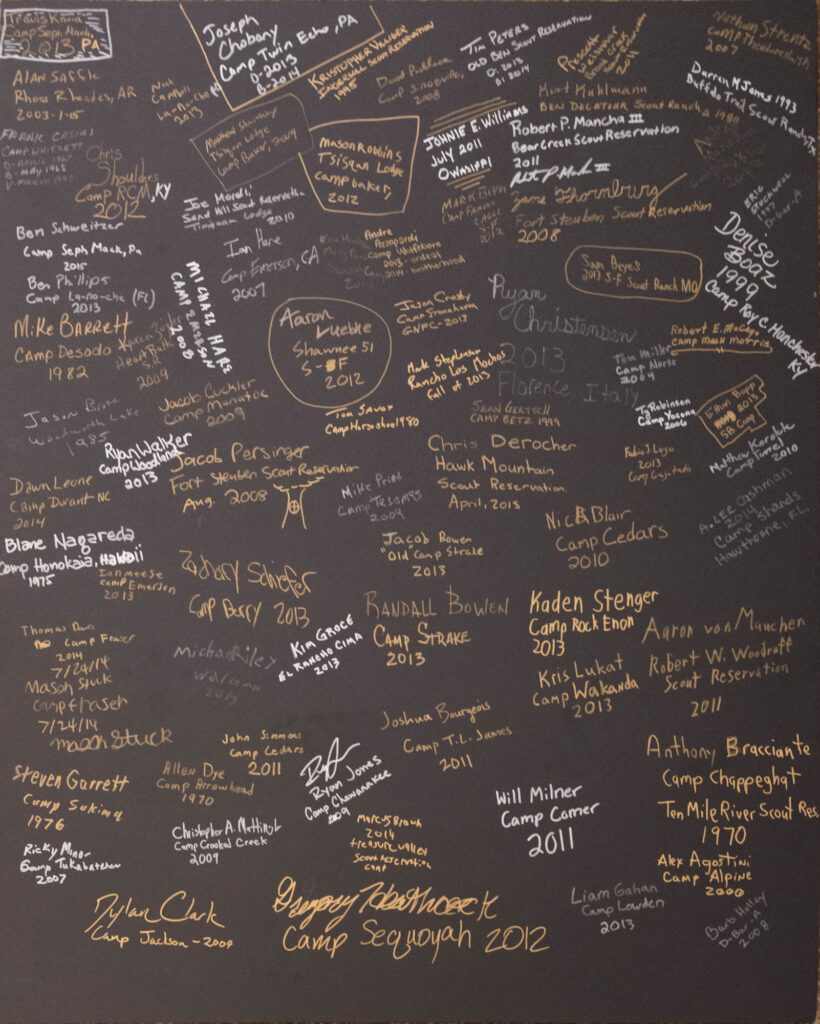 Travis Knaia
Camp Seph Mack,
2013 PA
Joseph
Chobany
Camp Twin Echo, PA
O-2013
B-2014
KRISTOPHER
INGERSOLL SCOUT RESERVATION
1995
David
Camp Sinoquipe,
2008
TIM PETERS
OLD BEN SCOUT RESERVATION
O: 2013
B: 2014
Prescott
2011
Nathan Strentz
Camp Theodore
2007
ALAN SAFFLE
Rhoss Rhodes, AR
2003-1-05
Noah
Campbell
La-no-che
2013
Kurt Kuhlmann
BEN DELATOUR Scout Ranch
1980
Darren M Jones 1993
Buffalo Trail Scout Ranch, Tx
FRANK
CAMP WHITSETT
B-MAY 1968
Chris
Shoulders
Camp RCM, KY
2012
Matthew
Tsisqan Lodge
Camp Baker, 2009
Mason Robbins
Tsisqan Lodge
Camp baker,
2012
JOHNIE E. Williams
JULY 2011
OWASIPPI
Robert P. Mancha III
Bear Creek Scout Reservation
2011
MARK
CAMP
2012
Zane Thornburg
Fort Steuben Scout Reservation
2008
ERIC
1999
D-bar-A
Joe
Sand Hill Scout Reservation
Timuquan Lodge
2010
Ben Schweitzer
Camp Seph Mack, Pa
2015
Ian Hare
Camp Emerson, CA
2007
Andre
Camp
2013 - ordeal
2014 - brotherhood
Sam Beyes
2013 S-F Scout Ranch MO
Denise
Boaz
1999
Camp Roy C. Manchester
KY
Ben Phillips
Camp La-no-che (FL)
2013
MICHAEL HARE
CAMP EMERSON
2008
Mike BARRETT
Camp Desoto
1982
Heart Butte
S.R.
2009
Aaron
Luebke
Shawnee 51
S-F
2012
Jason Crosby
Camp Stonehaven
GNFC-2013
Ryan
Christensen
2013
Florence, Italy
Robert E.
Camp Mack Morris
Mark Stephenson
Rancho Los Mochos
Fall of 2013
Tom Miller
Camp Norse
2004
Jason Brott
Woodworth Lake
1985
Jacob Cuckler
Camp Manatoc
2009
Tom Savoy
Camp Horseshoe 1980
SEAN GERTSCH
CAMP BETZ 1999
Ty Robinson
Camp Yocona
2006
Ethan Bopp
2013
SB Camp
Ryan Walker
Camp Woodland
2013
Jacob Persinger
Fort Steuben Scout Reservation
Aug. 2008
Chris Derocher
Hawk Mountain
Scout Reservation
April, 2015
Fabio J. Lugo
2013
Camp Guajataka
Matthew
Camp
2010
Dawn Leone
Camp Durant NC
2014
Mike Pries
Camp Tesomas
2009
Nick Blair
Camp Cedars
2010
A. LEE CASHMAN
2014
Camp Shands
Hawthorne, FL.
Blane Nagareda
Camp Honokaia, Hawaii
1975
Ian meese
Camp Emerson
2013
Jacob Bowen
"Old" Camp Strake
2013
Zachary Schiefer
Camp Berry 2013
RANDALL BOWEN
CAMP STRAKE
2013
Kaden Stenger
Camp Rock Enon
2013
Aaron von Mauchen
Robert W. Woodruff
Scout Reservation
2011
Thomas Davis
Camp Fraser
2014
7/24/14
Mason Stuck
Camp fraser
7/24/14
mason Stuck
Michael Riley
2013
KIM GROCE
EL RANCHO CIMA
2013
Kris Lukat
Camp Wakanda
2013
John Simmons
Camp Cedars
2011
Joshua Bourgeois
Camp T.L. James
2011
Anthony Bracciante
Camp Chappeghat
Ten Mile River Scout Res
1970
Steven Garrett
Camp Sukima
1976
Allen Dye
Camp Arrowhead
1970
Ryan Jones
Camp Chawanakee
2009
Will Milner
Camp Comer
2011
Ricky Minor
Camp Tukabatchee
2007
Christopher A. Mattingly
Camp Crooked Creek
2009
Marcus Brown
2014
treasure valley
Scout reservation
camp
Alex Agostini
Camp Alpine
2000
Dylan Clark
Camp Jackson - 2009
Gregory Heathcock
Camp Sequoyah 2012
Liam Gahan
Camp Lowden
2013
Barb Holley
D-Bar-A
2008